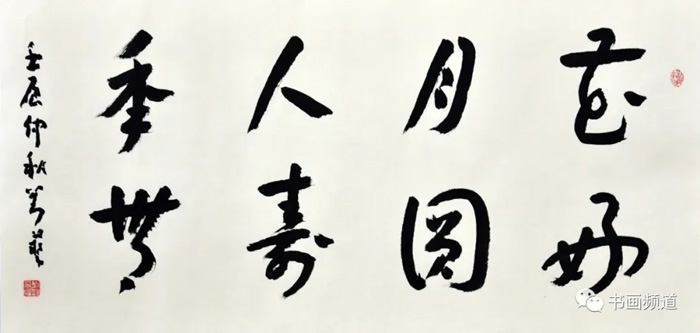 花好
月圓
人壽
年豐
壬辰仲秋
书画频道